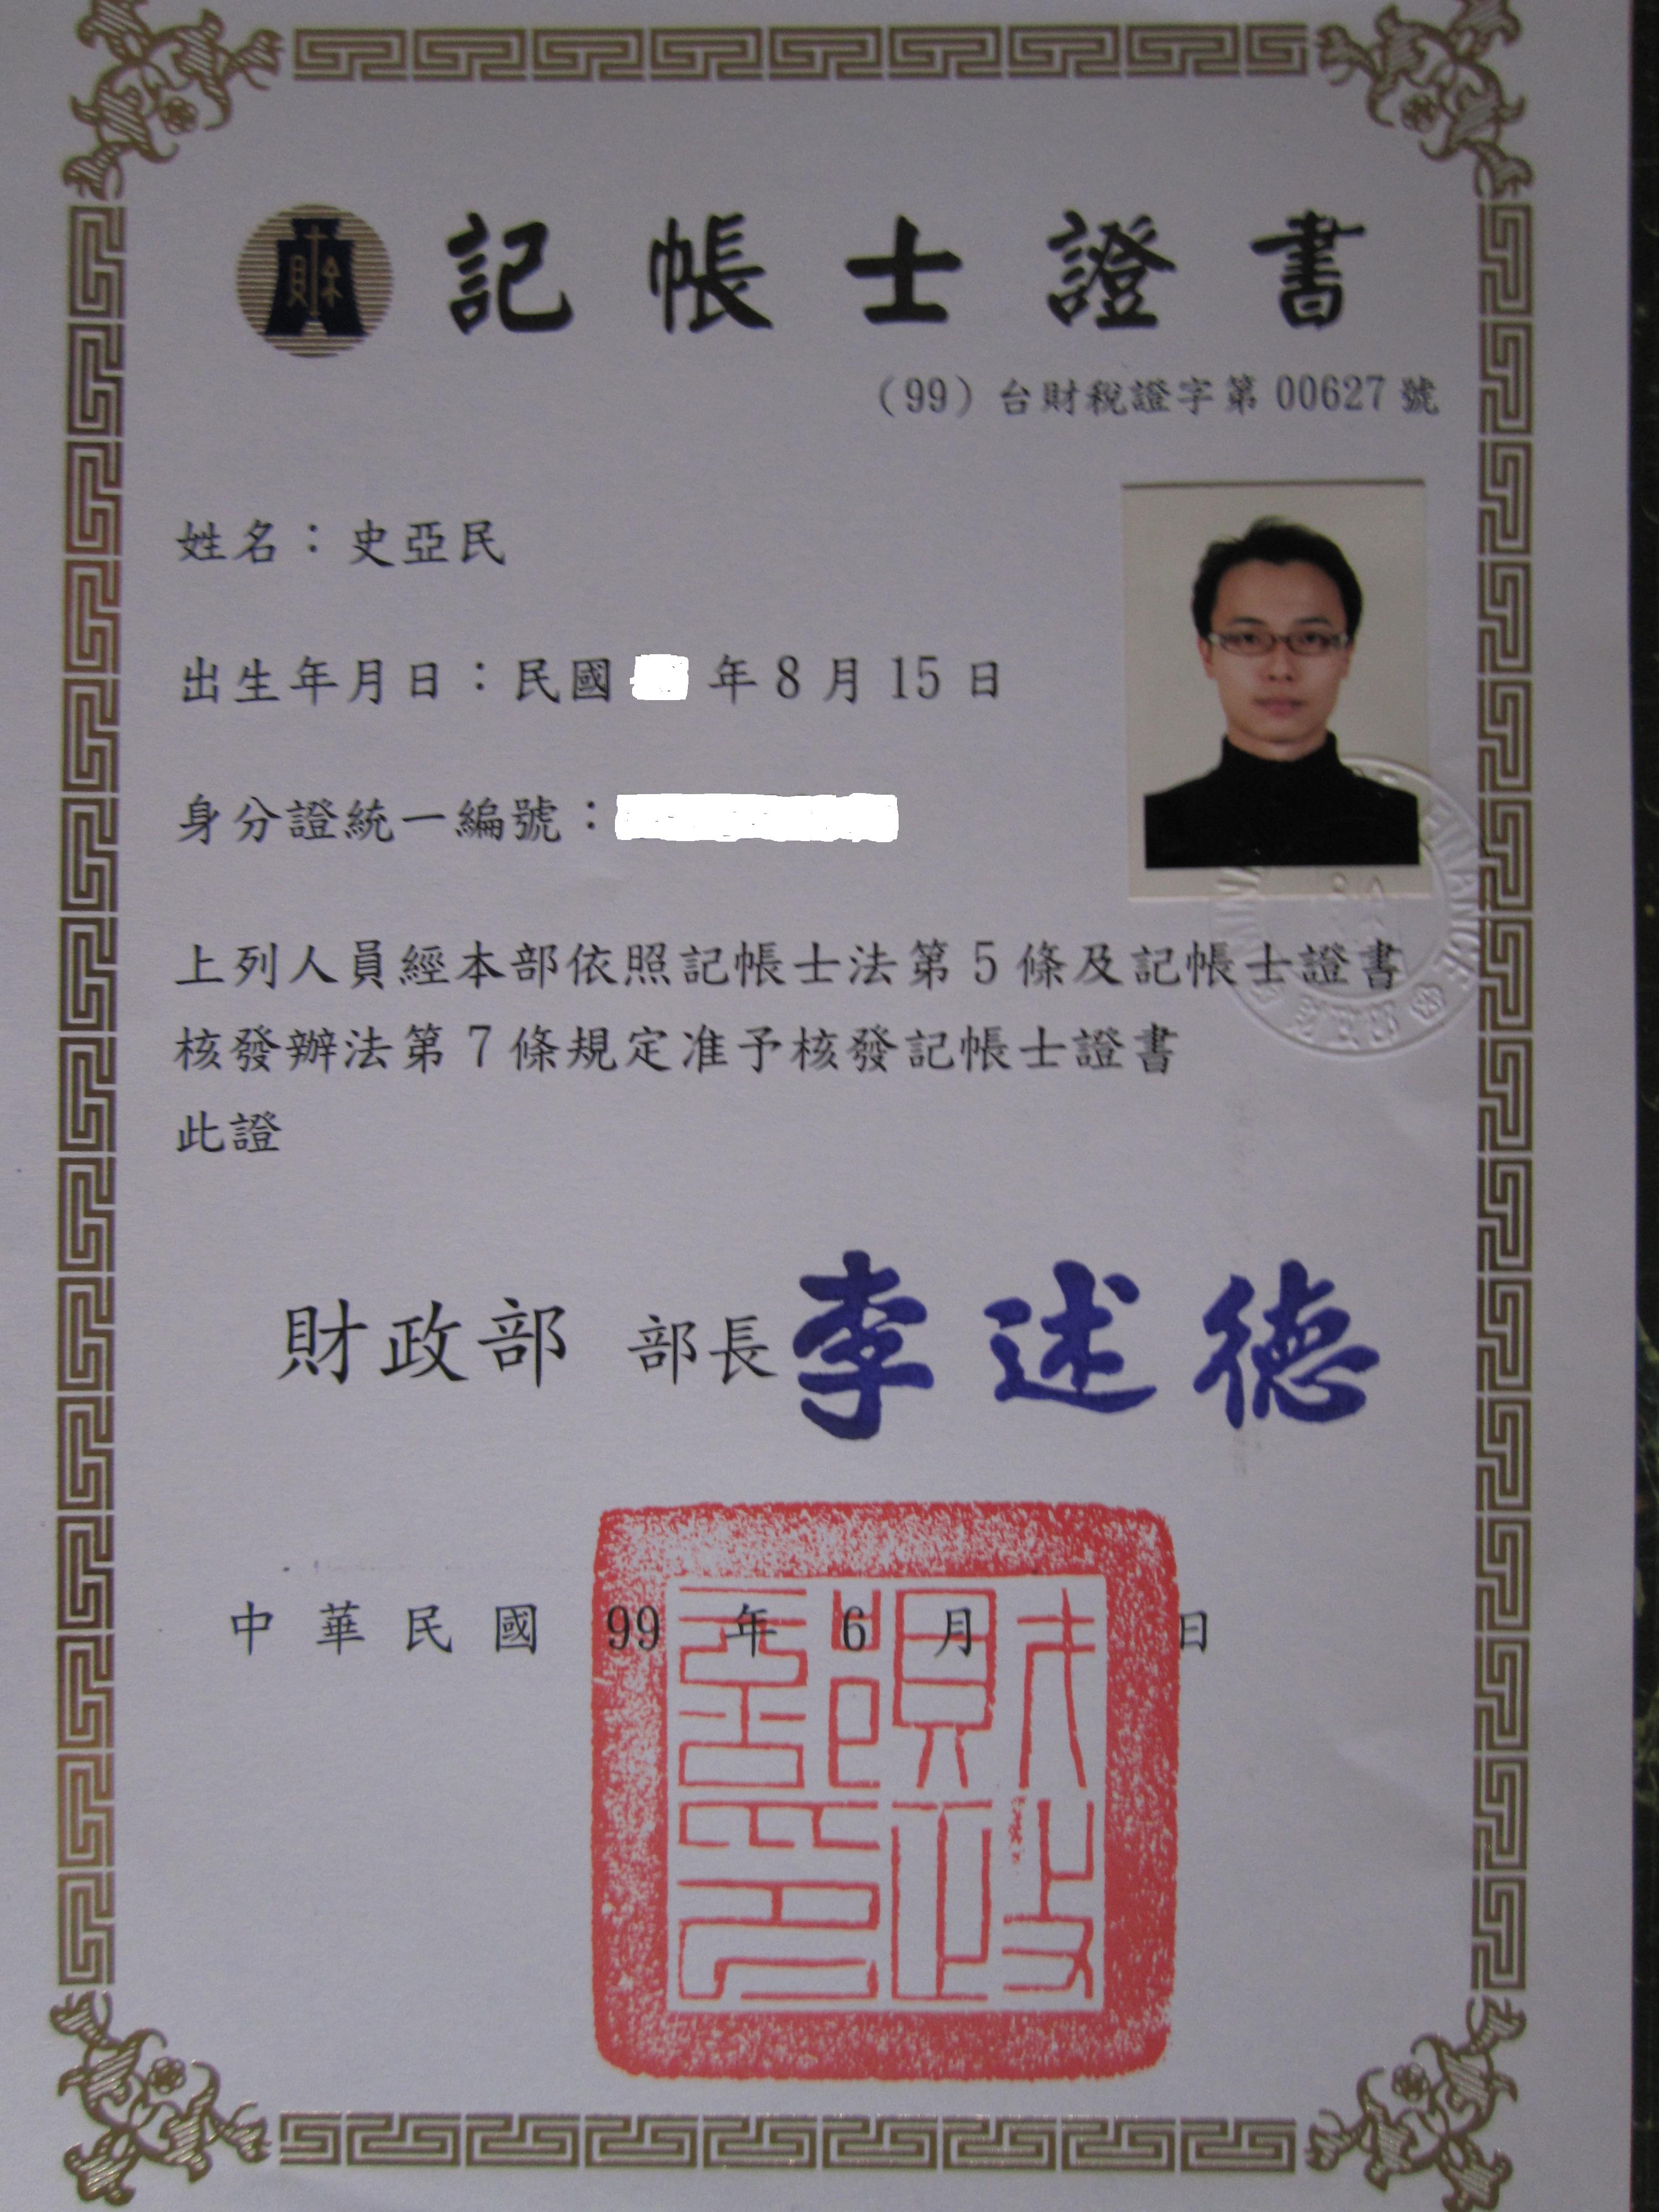 記帳士證書
（99）台財稅證字第 00627 號
姓名：史亞民
出生年月日：民國 年 8 月 15 日
身分證統一編號：
上列人員經本部依照記帳士法第 5 條及記帳士證書
核發辦法第 7 條規定准予核發記帳士證書
此證
財政部 部長 李述德
中華民國 99 年 6 月 日
財政部印